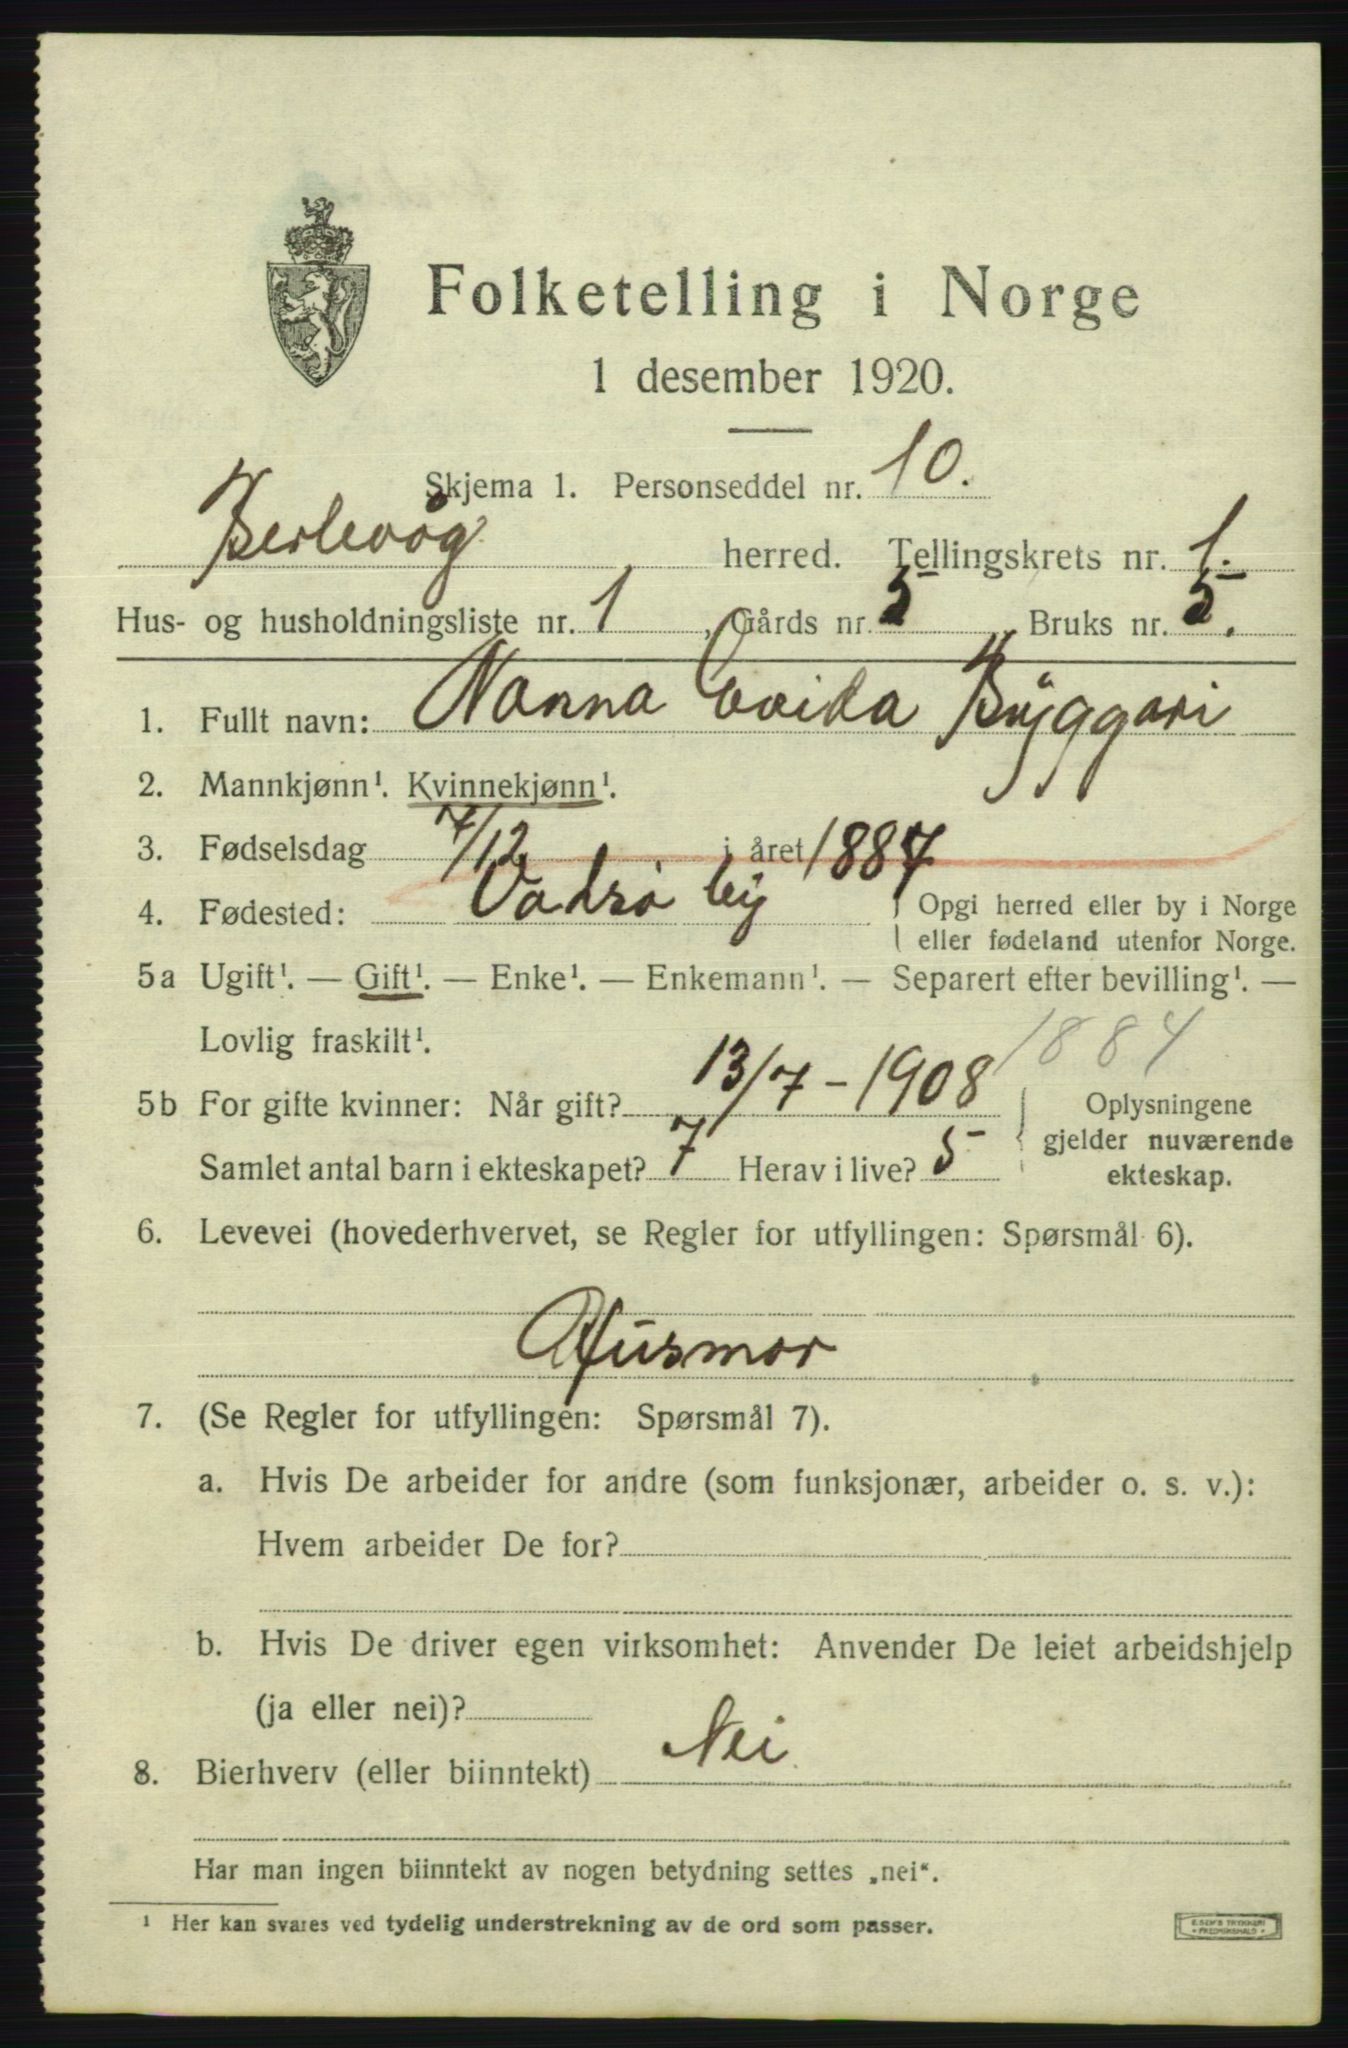 Folketelling i Norge
1 desember 1920.
Skjema 1. Personseddel nr. 10.
Berlevåg herred. Tellingskrets nr. 1.
Hus- og husholdningsliste nr. 1, Gårds nr. 5 Bruks nr. 5.
1. Fullt navn: Nanna Ovida Byggari
2. Mannkjønn¹. Kvinnekjønn¹.
3. Fødselsdag 7/12 i året 1887
4. Fødested: Vadsø by { Opgi herred eller by i Norge
eller fødeland utenfor Norge.
5a Ugift¹. — Gift¹. — Enke¹. — Enkemann¹. — Separert efter bevilling¹. —
Lovlig fraskilt¹.
1884
5b For gifte kvinner: Når gift? 13/7 - 1908
Samlet antal barn i ekteskapet? 7 Herav i live? 5
Oplysningene
gjelder nuværende
ekteskap.
6. Levevei (hovederhvervet, se Regler for utfyllingen: Spørsmål 6).
Husmor
7. (Se Regler for utfyllingen: Spørsmål 7).
a. Hvis De arbeider for andre (som funksjonær, arbeider o. s. v.):
Hvem arbeider De for?
b. Hvis De driver egen virksomhet: Anvender De leiet arbeidshjelp
(ja eller nei)?
8. Bierhverv (eller biinntekt) Nei
Har man ingen biinntekt av nogen betydning settes „nei“.
¹ Her kan svares ved tydelig understrekning av de ord som passer.
E. SEM'S TRYKKERI
FREDRIKSHALD